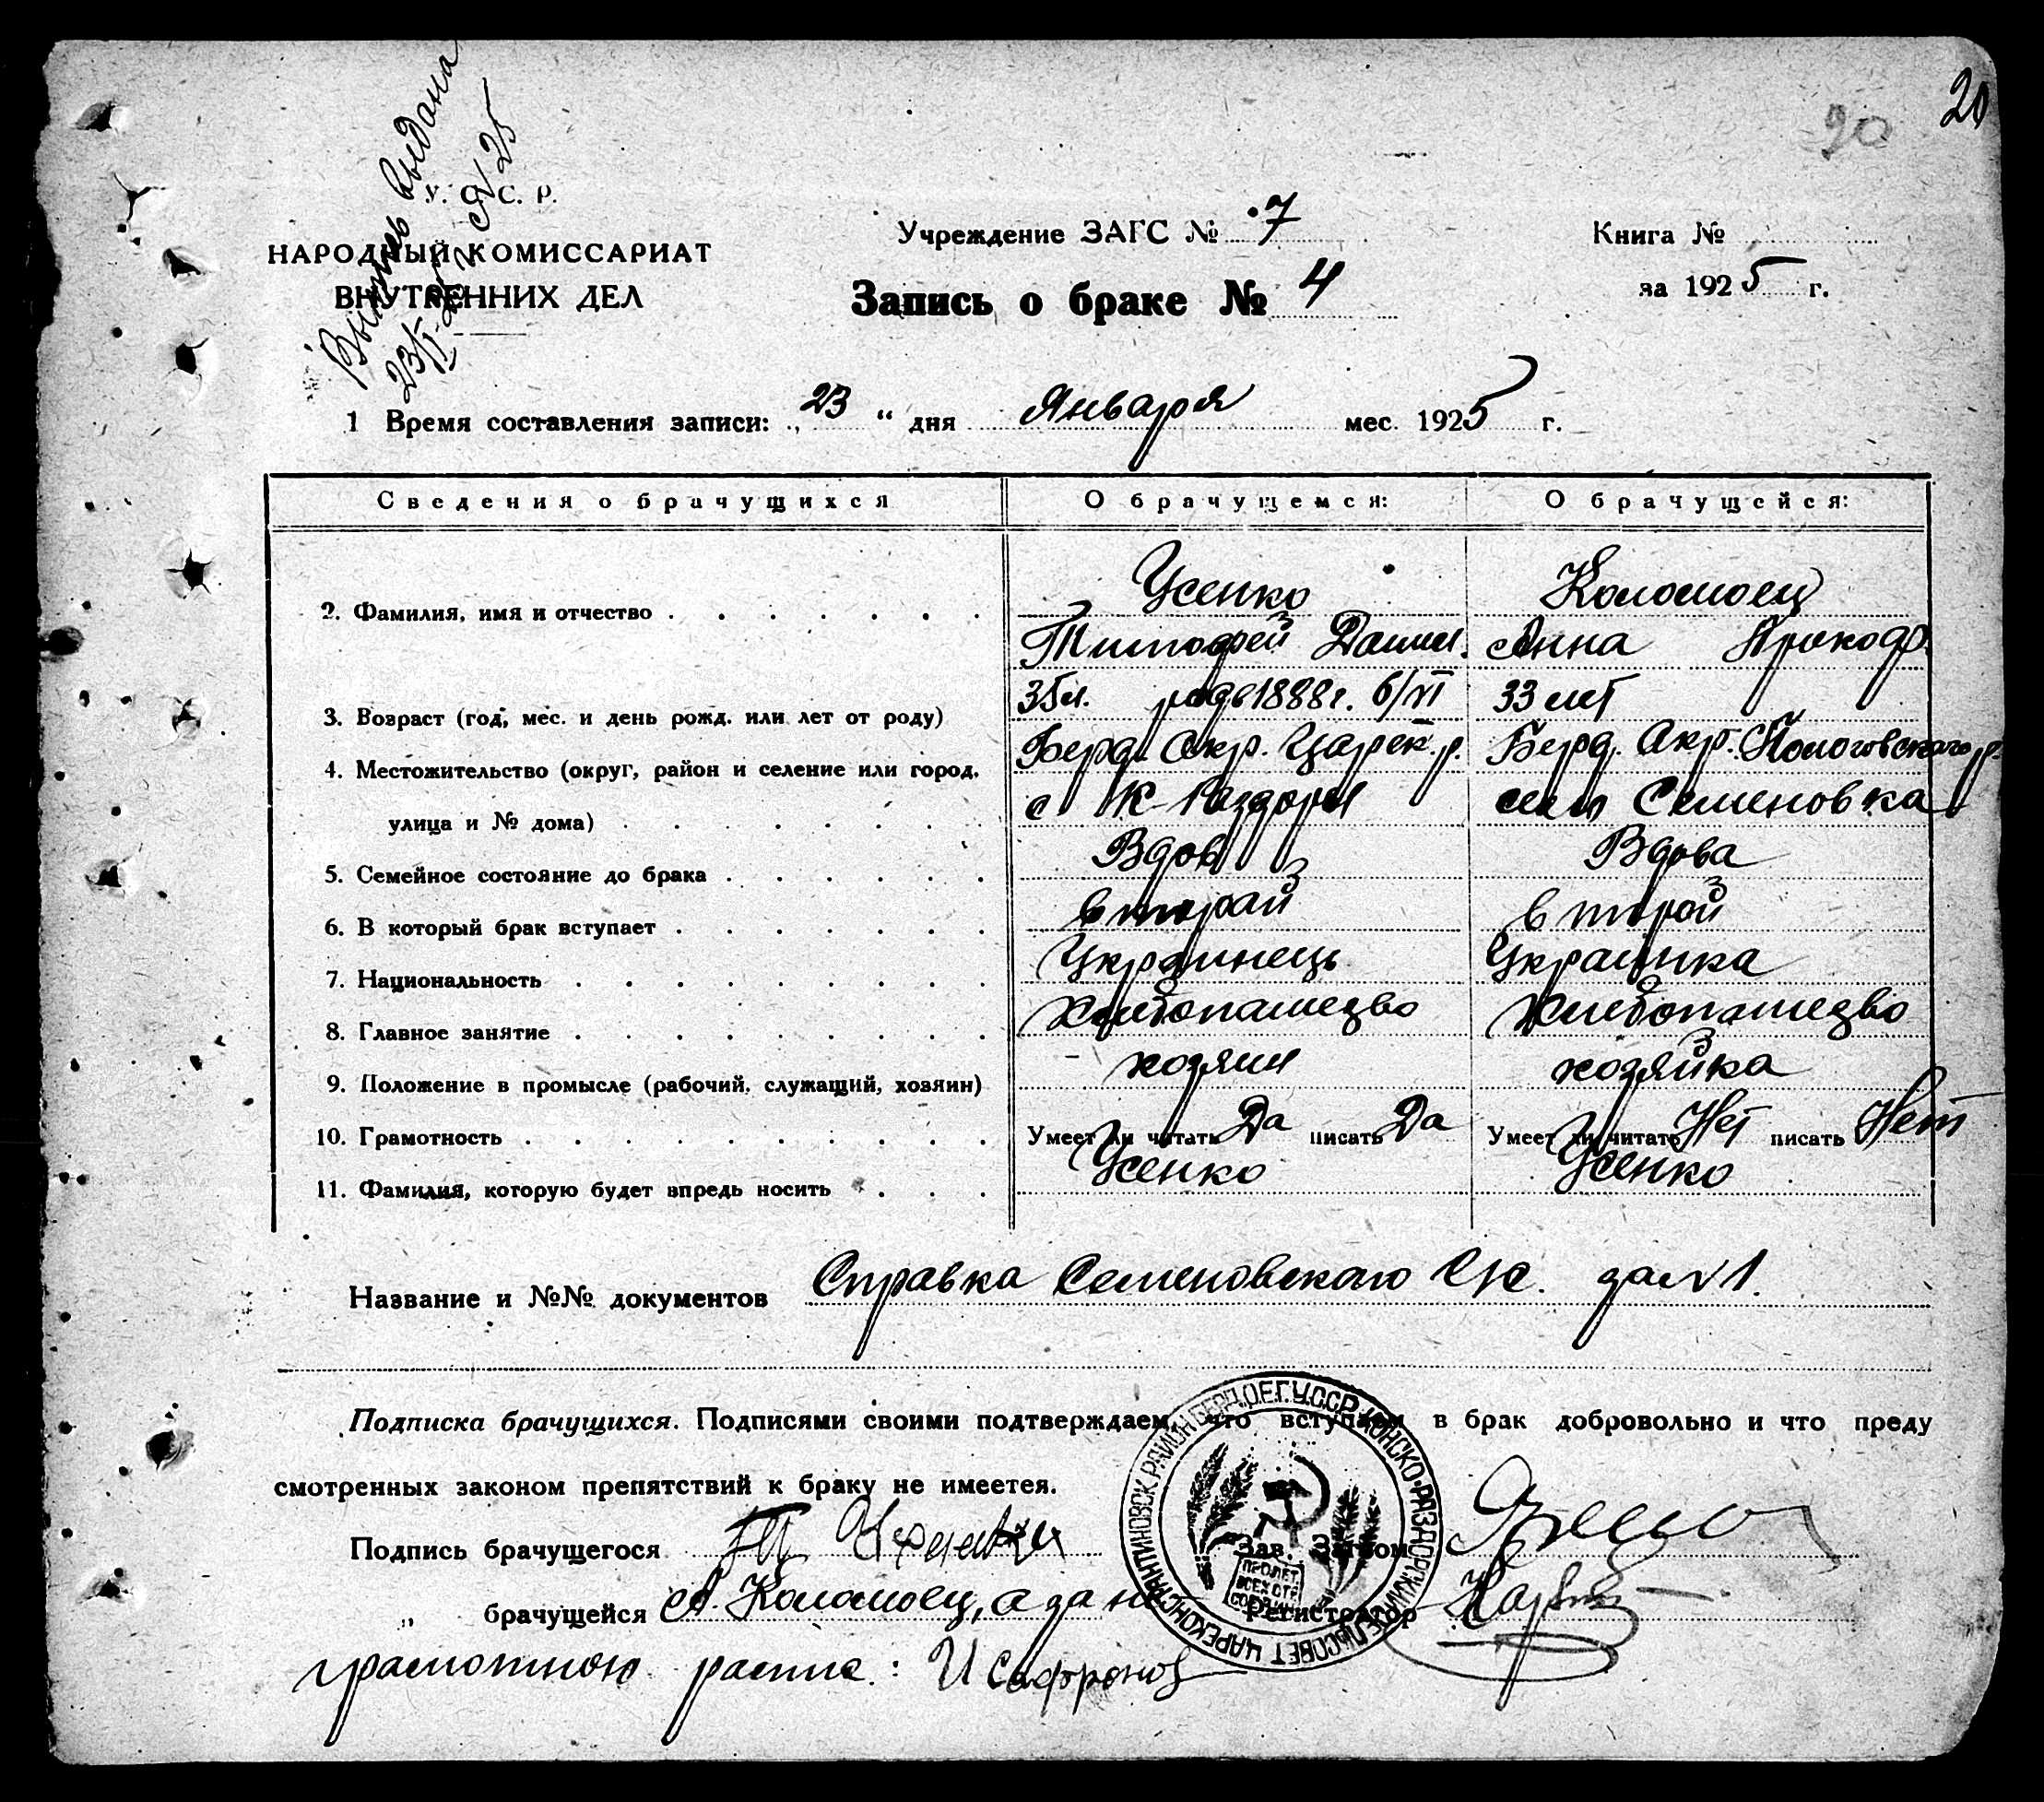 20
20
Выпись выдана
23/I 25
У. С. С. Р.
НАРОДНЫЙ КОМИССАРИАТ
ВНУТРЕННИХ ДЕЛ
Учреждение ЗАГС № 7
Книга №
Запись о браке № 4
за 1925 г.
1 Время составления записи: „ 23 “ дня Января мес. 1925 г.
Сведения о брачущихся О брачущемся: О брачущейся:
Усенко Коломоец
2. Фамилия, имя и отчество
Тимофей Данил. Анна Прокоф.
3. Возраст (год, мес. и день рожд. или лет от роду) 35 л. 1888 г. 6/VI 33 лет
4. Местожительство (округ, район и селение или город, Берд. Окр. Царек. р. Берд. Окр. Пологовского р.
улица и № дома) с К-Раздоры села Семеновка
5. Семейное состояние до брака Вдов Вдова
6. В который брак вступает второй второй
7. Национальность Украинець Украинка
8. Главное занятие Хлебопашедво Хлебопашедво
9. Положение в промысле (рабочий, служащий, хозяин) хозяин хозяйка
10. Грамотность Умеет ли читать Да писать Да Умеет ли читать Нет писать Нет
11. Фамилия, которую будет впредь носить Усенко Усенко
Название и №№ документов Справка Семеновского за № 1.
Подписка брачущихся. Подписями своими подтверждаем, что вступаем в брак добровольно и что преду
смотренных законом препятствий к браку не имеетея.
Подпись брачущегося Зав. Загсом
„ брачущейся А. Коломоец, а за не Регистратор
грамотною распис: И Сафронов
ЦАРЕКОНСТАНТИНОВСК. РАЙОН БЕРД. О.Е.Г. У.С.С.Р. КОНСКО-РАЗДОРСКИЙ СЕЛЬСОВЕТ
ПРОЛЕТ.
ВСЕХ СТР.
СОЕДИН.